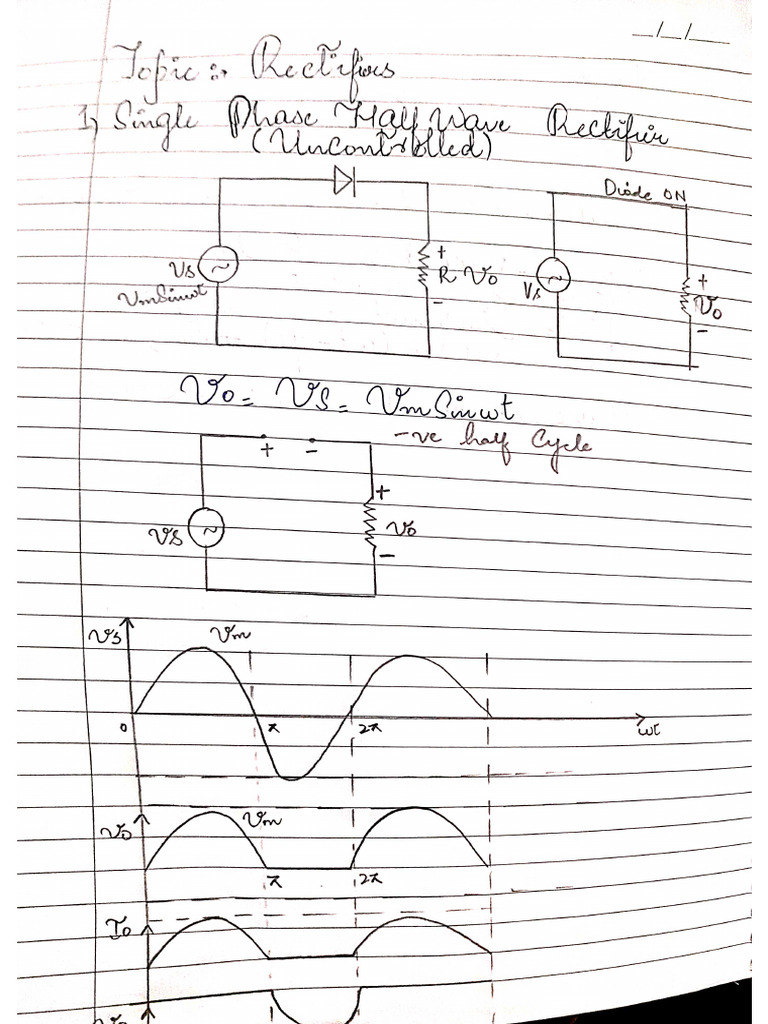 _/_/_
Topic:- Rectifiers
1) Single Phase Half Wave Rectifier
(Uncontrolled)
Diode ON
Vs
VmSinwt
+
R Vo
-
Vs
+
Vo
-
Vo = Vs = VmSinwt
-ve half Cycle
+ -
Vs
+
Vo
-
Vs
Vm
0
π
2π
wt
Vo
Vm
π
2π
Io